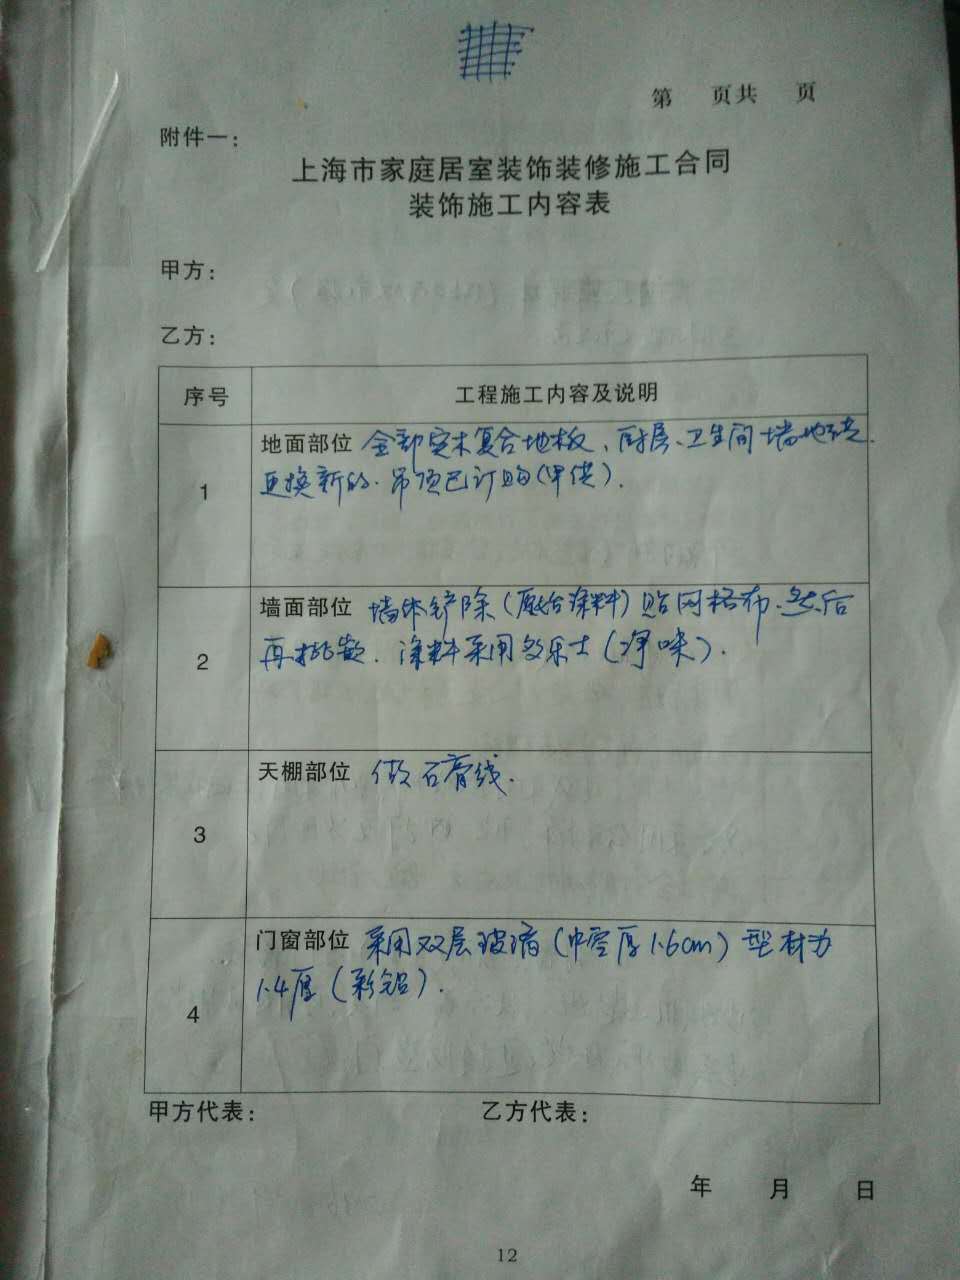 第 页共 页
附件一：
上海市家庭居室装饰装修施工合同
装饰施工内容表
甲方：
乙方：
序号 工程施工内容及说明
地面部位 全部实木复合地板、厨房、卫生间墙地砖
1 更换新的.吊顶已订购(甲供).
墙面部位 墙体铲除(原始涂料)贴网格布.然后
2 再批嵌.涂料采用多乐士(净味).
天棚部位 做石膏线.
3
门窗部位 采用双层玻璃(中空厚1.6cm)型材为
1.4厚(彩铝).
4
甲方代表： 乙方代表：
年 月 日
12